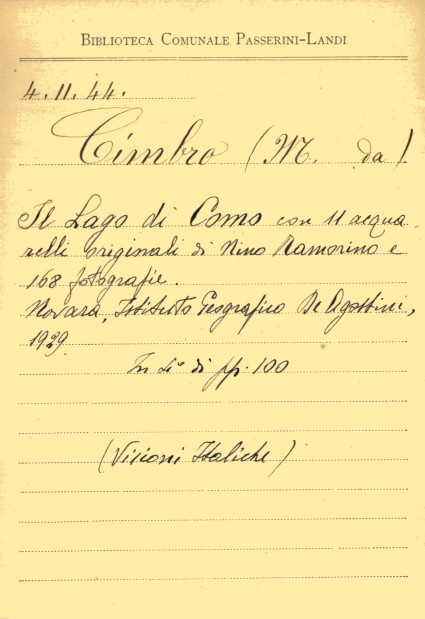 BIBLIOTECA COMUNALE PASSERINI-LANDI
4.11.44.
Cimbro (M. da)
Il Lago di Como con 11 acqua
relli originali di Nino Ramorino e
168 fotografie.
Novara, Istituto Geografico De Agostini,
1929
In 4° di pp. 100
(Visioni Italiche)